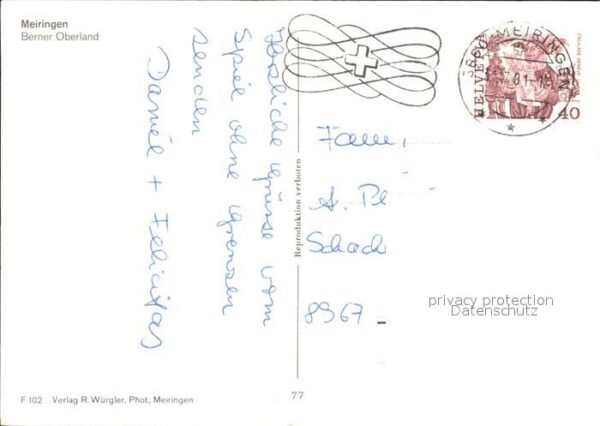 Meiringen
Berner Oberland
Herzliche Grüsse vom
Spiel ohne Grenzen
senden
Daniel + Felicitas
3860 MEIRINGEN
81-18
HELVETIA
40
Fam.
A. Pl
Schach
8967
Reproduktion verboten
privacy protection
Datenschutz
F 102 Verlag R. Würgler, Phot., Meiringen
77